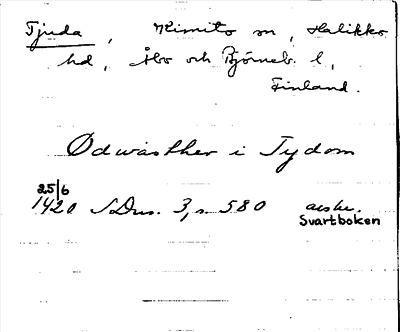 Tjuda, Kimito sn, Halikko
hd, Åbo och Björneb. l,
Finland.
Ødwasther i Tydom
25/6
1420 SDns. 3, s. 580 avskr.
Svartboken